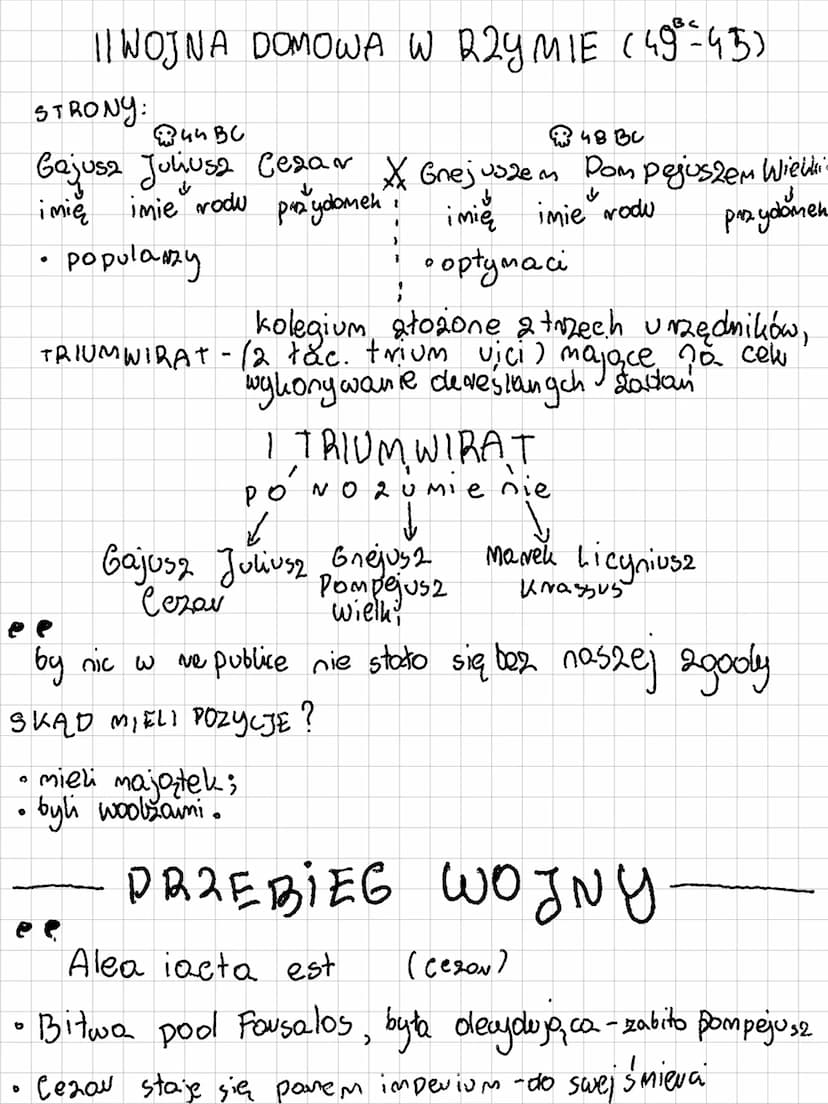 II WOJNA DOMOWA W RZYMIE (49 BC - 45)
STRONY:
44 BC 48 BC
Gajusz Juliusz Cezar X Gnejuszem Pompejuszem Wielki
imię imie rodu przydomek imię imie rodu przydomek
• popularzy • optymaci
kolegium złożone z trzech urzędników,
TRIUMWIRAT - (z łac. trium vici) mające na celu
wykonywanie określanych zadań
I TRIUMWIRAT
porozumienie
Gajusz Juliusz Gnejusz Marek Licyniusz
Cezar Pompejusz Krassus
Wielki
by nic w republice nie stało się bez naszej zgody
SKĄD MIELI POZYCJE?
• mieli majątek;
• byli wodzami.
PRZEBIEG WOJNY
Alea iacta est (Cezar)
• Bitwa pod Farsalos, była decydująca - zabito pompejusz
• Cezar staje się panem imperium - do swej śmierci